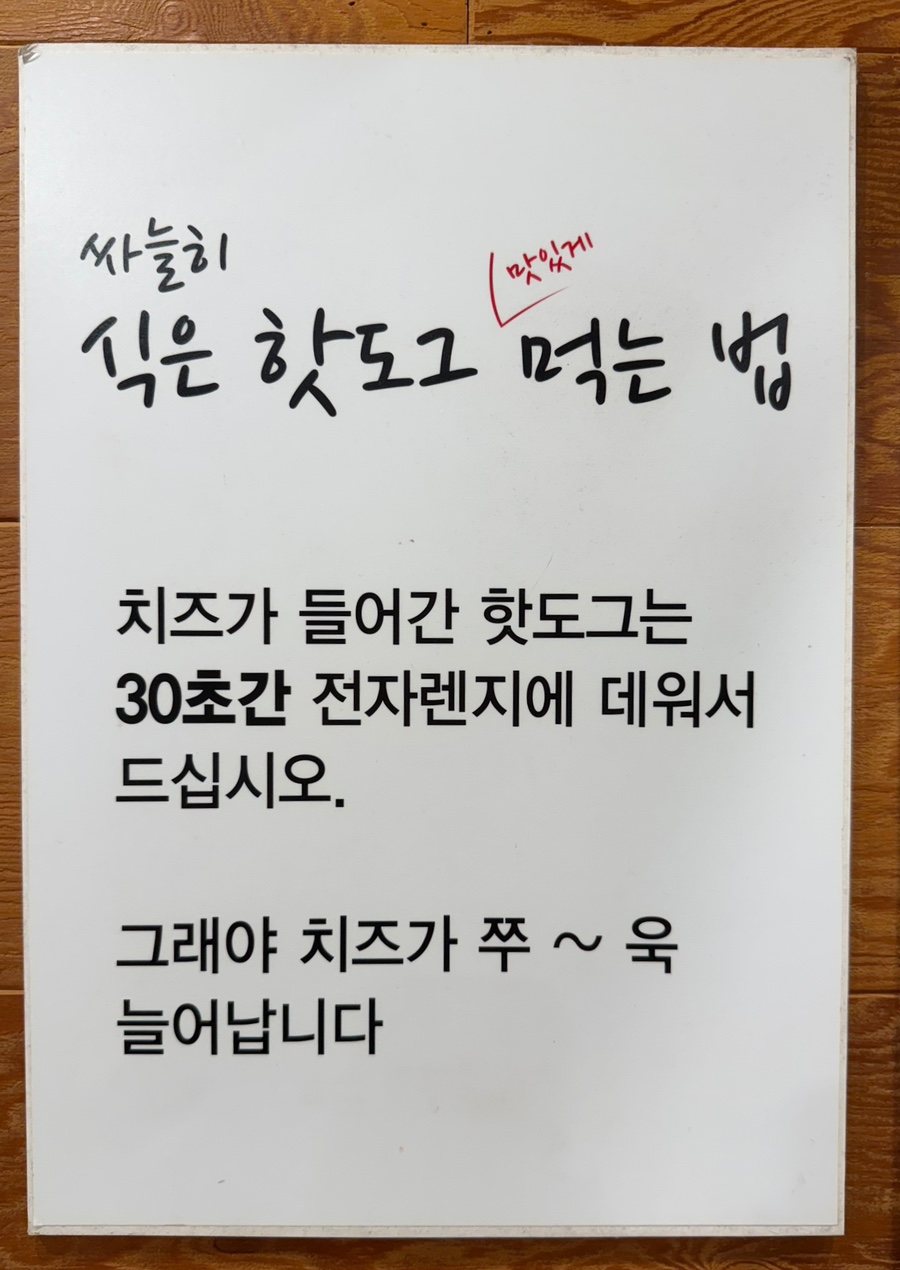 싸늘히
식은 핫도그 맛있게 먹는 법
치즈가 들어간 핫도그는
30초간 전자렌지에 데워서
드십시오.
그래야 치즈가 쭈 ~ 욱
늘어납니다